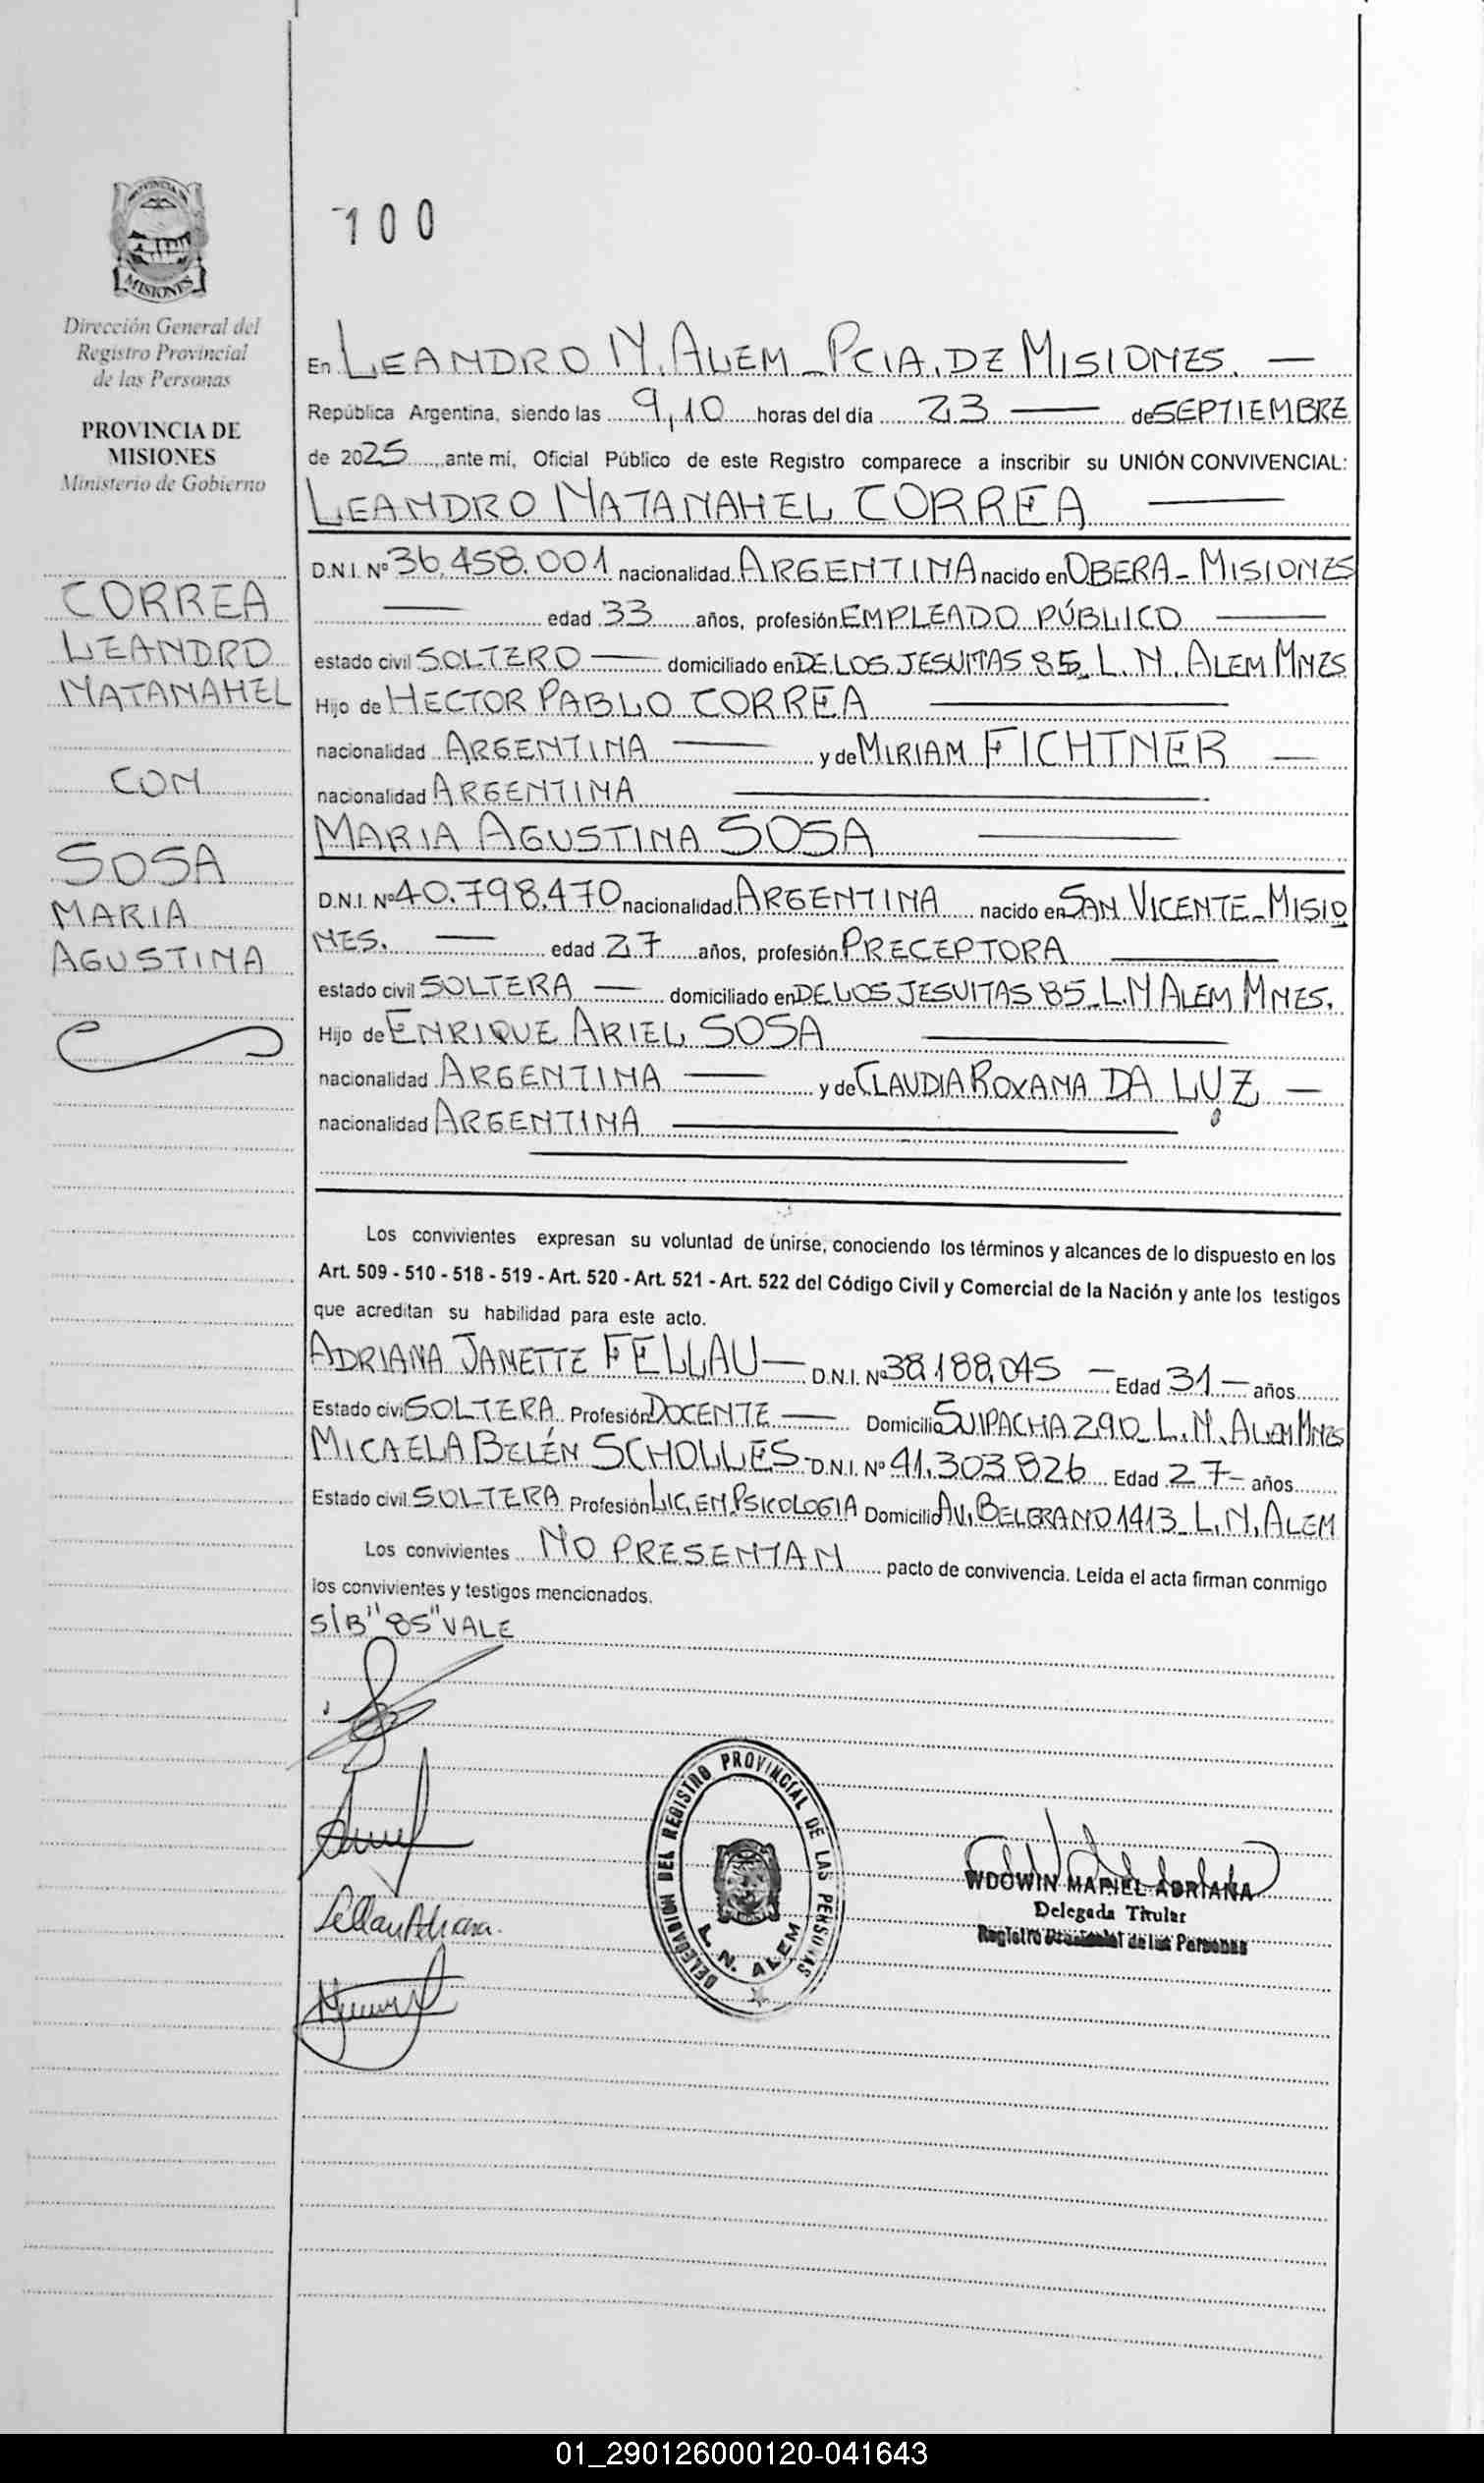 PROVINCIA DE
MISIONES
Dirección General del
Registro Provincial
de las Personas
PROVINCIA DE
MISIONES
Ministerio de Gobierno
CORREA
LEANDRO
NATANAHEL
CON
SOSA
MARIA
AGUSTINA
100
En LEANDRO N. ALEM - PCIA. DE MISIONES. —
República Argentina, siendo las 9,10 horas del día 23 — de SEPTIEMBRE
de 2025 ante mi, Oficial Público de este Registro comparece a inscribir su UNIÓN CONVIVENCIAL:
LEANDRO NATANAHEL CORREA —
D.N.I. Nº 36.458.001 nacionalidad ARGENTINA nacido en OBERA - MISIONES
— edad 33 años, profesión EMPLEADO PÚBLICO —
estado civil SOLTERO — domiciliado en DE LOS JESUITAS 85 - L. N. ALEM MNES
Hijo de HECTOR PABLO CORREA —
nacionalidad ARGENTINA — y de MIRIAM FICHTNER —
nacionalidad ARGENTINA —
MARIA AGUSTINA SOSA —
D.N.I. Nº 40.798.470 nacionalidad ARGENTINA nacido en SAN VICENTE - MISIO
NES. — edad 27 años, profesión PRECEPTORA —
estado civil SOLTERA — domiciliado en DE LOS JESUITAS 85 - L.N ALEM MNES.
Hijo de ENRIQUE ARIEL SOSA —
nacionalidad ARGENTINA — y de CLAUDIA ROXANA DA LUZ —
nacionalidad ARGENTINA —
Los convivientes expresan su voluntad de unirse, conociendo los términos y alcances de lo dispuesto en los
Art. 509 - 510 - 518 - 519 - Art. 520 - Art. 521 - Art. 522 del Código Civil y Comercial de la Nación y ante los testigos
que acreditan su habilidad para este acto.
ADRIANA JANETTE FELLAU — D.N.I. Nº 38.188.045 — Edad 31 — años
Estado civil SOLTERA Profesión DOCENTE — Domicilio SUIPACHA 290 - L. N. ALEM MNES
MICAELA BELÉN SCHOLLES - D.N.I. Nº 41.303.826 Edad 27 - años
Estado civil SOLTERA Profesión LIC. EN PSICOLOGIA Domicilio AV. BELGRANO 1413 - L. N. ALEM
Los convivientes NO PRESENTAN pacto de convivencia. Leída el acta firman conmigo
los convivientes y testigos mencionados.
S/B "85" VALE
Fellau Adriana.
DELEGACION DEL REGISTRO PROVINCIAL DE LAS PERSONAS
L. N. ALEM
WDOWIN MARIEL ADRIANA
Delegada Titular
Registro Provincial de las Personas
01_290126000120-041643